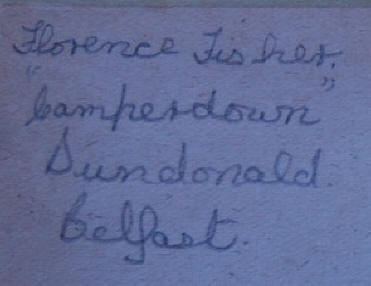 Florence Fisher.
"Camperdown"
Dundonald.
Belfast.